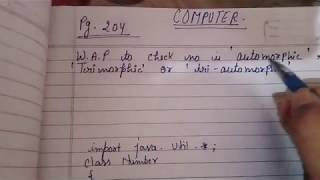 Pg. 204
COMPUTER.
W.A.P to check no is 'automorphic'
'Trimorphic' or 'tri-automorphic
import java. util. *;
Class Number
{